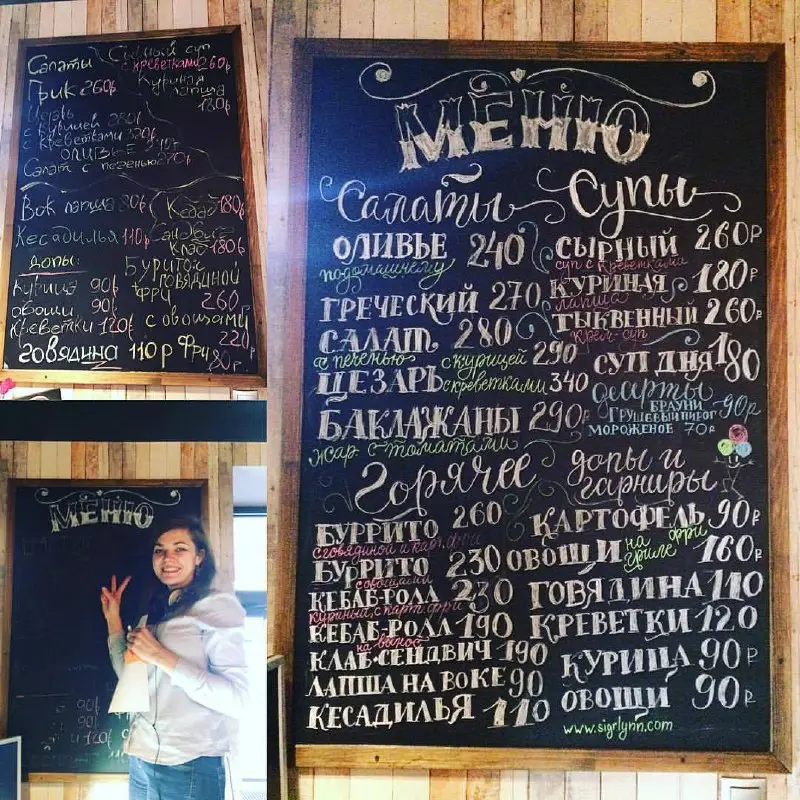 Салаты
Грик 260р
Цезарь
с курицей 280р
с креветками 320р
ОЛИВЬЕ
Салат с печенью 270р
Сырный суп
с креветками 260р
Куриная
лапша
180р
Вок лапша
Кесадилья 110р
Кебаб 180р
Сандвич
Клаб 180р
допы:
курица 90р
овощи 90р
креветки 120р
говядина 110 р
Буррито
с говядиной
фри
260
с овощами
220
Фри
80р.
МЕНЮ
90р
90р
МЕНЮ
Салаты
ОЛИВЬЕ 240
подомашнему
ГРЕЧЕСКИЙ 270
САЛАТ 280
с печенью
ЦЕЗАРЬ с курицей 290
с креветками 340
БАКЛАЖАНЫ 290
жар с томатами
Супы
СЫРНЫЙ 260р
суп с креветками
КУРИНАЯ 180р
лапша
ТЫКВЕННЫЙ 260р
крем-суп
СУП ДНЯ 180
десерты
БРАУНИ
ГРУШЕВЫЙ ПИРОГ 90р
МОРОЖЕНОЕ 70р
Горячее
БУРРИТО 260
с говядиной и карт. фри
БУРРИТО 230
с овощами
КЕБАБ-РОЛЛ 230
куриный с карт. фри
КЕБАБ-РОЛЛ 190
на вынос
КЛАБ-СЕНДВИЧ 190
ЛАПША НА ВОКЕ 90
КЕСАДИЛЬЯ 110
допы и
гарниры
КАРТОФЕЛЬ 90р
фри
ОВОЩИ на гриле 160р
ГОВЯДИНА 110
КРЕВЕТКИ 120
КУРИЦА 90р
ОВОЩИ 90р
www.sigrlynn.com